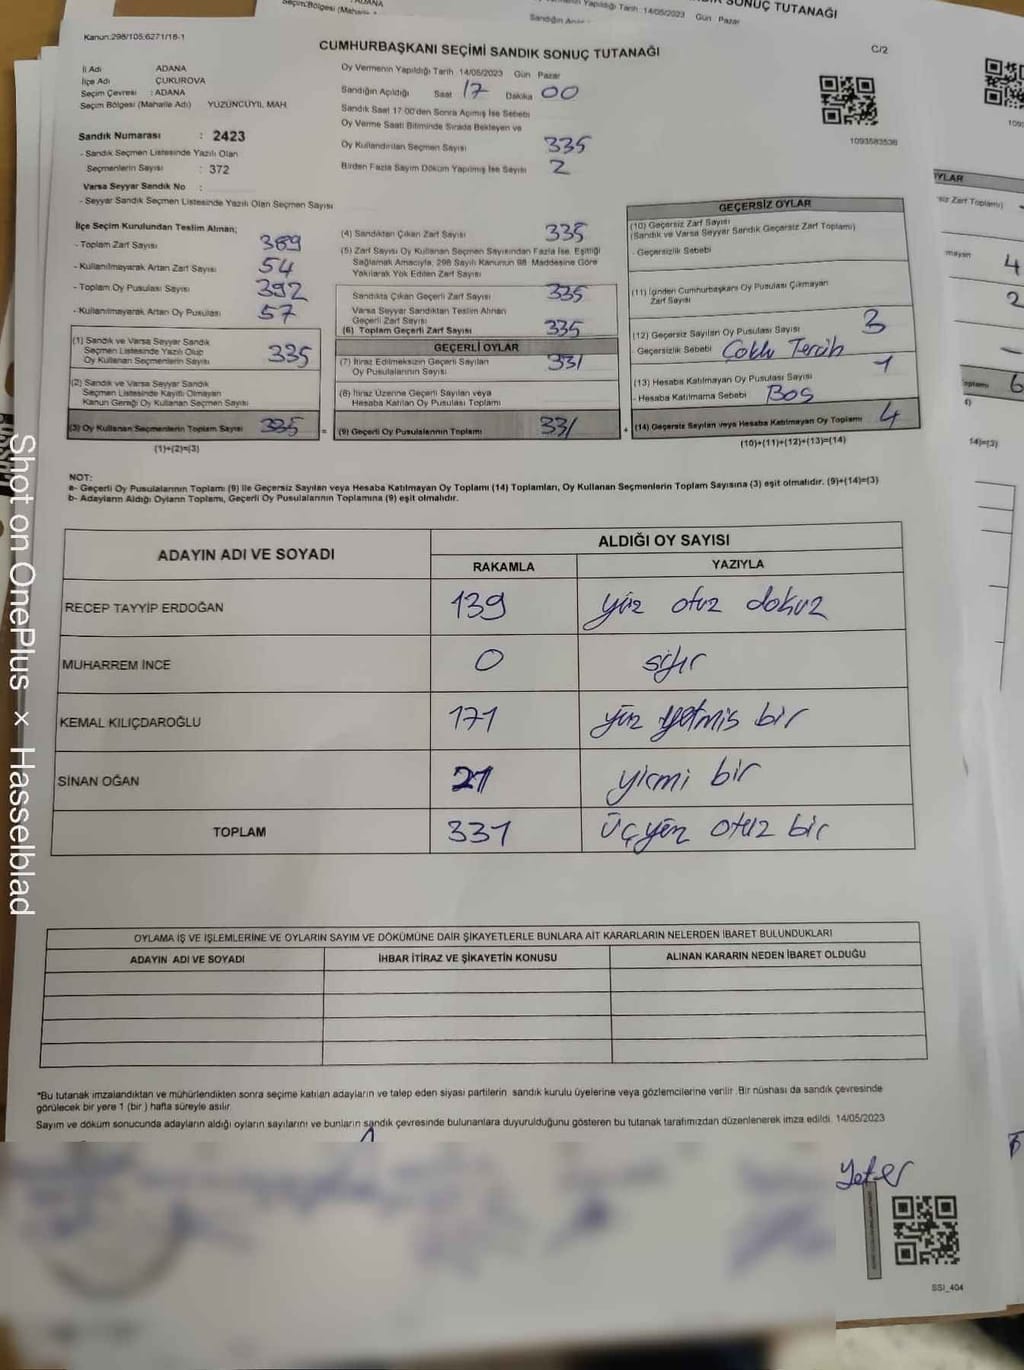 SONUÇ TUTANAĞI
Yapıldığı Tarih 14/05/2023 Gün Pazar
Kanun:298/105,6271/18-1
CUMHURBAŞKANI SEÇİMİ SANDIK SONUÇ TUTANAĞI
C/2
İl Adı ADANA
İlçe Adı ÇUKUROVA
Seçim Çevresi : ADANA
Seçim Bölgesi (Mahalle Adı) YÜZÜNCÜYIL MAH.
Sandık Numarası : 2423
- Sandık Seçmen Listesinde Yazılı Olan
Seçmenlerin Sayısı : 372
Varsa Seyyar Sandık No :
- Seyyar Sandık Seçmen Listesinde Yazılı Olan Seçmen Sayısı
Oy Vermenin Yapıldığı Tarih 14/05/2023 Gün Pazar
Sandığın Açıldığı Saat 17 Dakika 00
Sandık Saat 17:00'den Sonra Açılmış İse Sebebi
Oy Verme Saati Bitiminde Sırada Bekleyen ve
Oy Kullandırılan Seçmen Sayısı 335
Birden Fazla Sayım Döküm Yapılmış İse Sayısı 2
1093583536
İlçe Seçim Kurulundan Teslim Alınan;
- Toplam Zarf Sayısı 389
- Kullanılmayarak Artan Zarf Sayısı 54
- Toplam Oy Pusulası Sayısı 392
- Kullanılmayarak Artan Oy Pusulası 57
(1) Sandık ve Varsa Seyyar Sandık
Seçmen Listesinde Yazılı Olup
Oy Kullanan Seçmenlerin Sayısı 335
(2) Sandık ve Varsa Seyyar Sandık
Seçmen Listesinde Kayıtlı Olmayan
Kanun Gereği Oy Kullanan Seçmen Sayısı
(3) Oy Kullanan Seçmenlerin Toplam Sayısı 335
(1)+(2)=(3)
(4) Sandıktan Çıkan Zarf Sayısı 335
(5) Zarf Sayısı Oy Kullanan Seçmen Sayısından Fazla İse, Eşitliği
Sağlamak Amacıyla, 298 Sayılı Kanunun 98. Maddesine Göre
Yakılarak Yok Edilen Zarf Sayısı
Sandıkta Çıkan Geçerli Zarf Sayısı 335
Varsa Seyyar Sandıktan Teslim Alınan
Geçerli Zarf Sayısı
(6) Toplam Geçerli Zarf Sayısı 335
GEÇERLİ OYLAR
(7) İtiraz Edilmeksizin Geçerli Sayılan
Oy Pusulalarının Sayısı 331
(8) İtiraz Üzerine Geçerli Sayılan veya
Hesaba Katılan Oy Pusulası Toplamı
= (9) Geçerli Oy Pusulalarının Toplamı 331
GEÇERSİZ OYLAR
(10) Geçersiz Zarf Sayısı
(Sandık ve Varsa Seyyar Sandık Geçersiz Zarf Toplamı)
- Geçersizlik Sebebi
(11) İçinden Cumhurbaşkanı Oy Pusulası Çıkmayan
Zarf Sayısı
(12) Geçersiz Sayılan Oy Pusulası Sayısı 3
- Geçersizlik Sebebi Çoklu Tercih
(13) Hesaba Katılmayan Oy Pusulası Sayısı 1
- Hesaba Katılmama Sebebi Boş
+ (14) Geçersiz Sayılan veya Hesaba Katılmayan Oy Toplamı 4
(10)+(11)+(12)+(13)=(14)
NOT:
a- Geçerli Oy Pusulalarının Toplamı (9) ile Geçersiz Sayılan veya Hesaba Katılmayan Oy Toplamı (14) Toplamları, Oy Kullanan Seçmenlerin Toplam Sayısına (3) eşit olmalıdır. (9)+(14)=(3)
b- Adayların Aldığı Oyların Toplamı, Geçerli Oy Pusulalarının Toplamına (9) eşit olmalıdır.
ADAYIN ADI VE SOYADI
ALDIĞI OY SAYISI
RAKAMLA YAZIYLA
RECEP TAYYİP ERDOĞAN 139 yüz otuz dokuz
MUHARREM İNCE 0 sıfır
KEMAL KILIÇDAROĞLU 171 yüz yetmiş bir
SİNAN OĞAN 21 yirmi bir
TOPLAM 331 üçyüz otuz bir
OYLAMA İŞ VE İŞLEMLERİNE VE OYLARIN SAYIM VE DÖKÜMÜNE DAİR ŞİKAYETLERLE BUNLARA AİT KARARLARIN NELERDEN İBARET BULUNDUKLARI
ADAYIN ADI VE SOYADI İHBAR İTİRAZ VE ŞİKAYETİN KONUSU ALINAN KARARIN NEDEN İBARET OLDUĞU
*Bu tutanak imzalandıktan ve mühürlendikten sonra seçime katılan adayların ve talep eden siyasi partilerin sandık kurulu üyelerine veya gözlemcilerine verilir. Bir nüshası da sandık çevresinde
görülecek bir yere 1 (bir) hafta süreyle asılır.
Sayım ve döküm sonucunda adayların aldığı oyların sayılarını ve bunların sandık çevresinde bulunanlara duyurulduğunu gösteren bu tutanak tarafımızdan düzenlenerek imza edildi. 14/05/2023
Yeter
SSI_404
Shot on OnePlus × Hasselblad